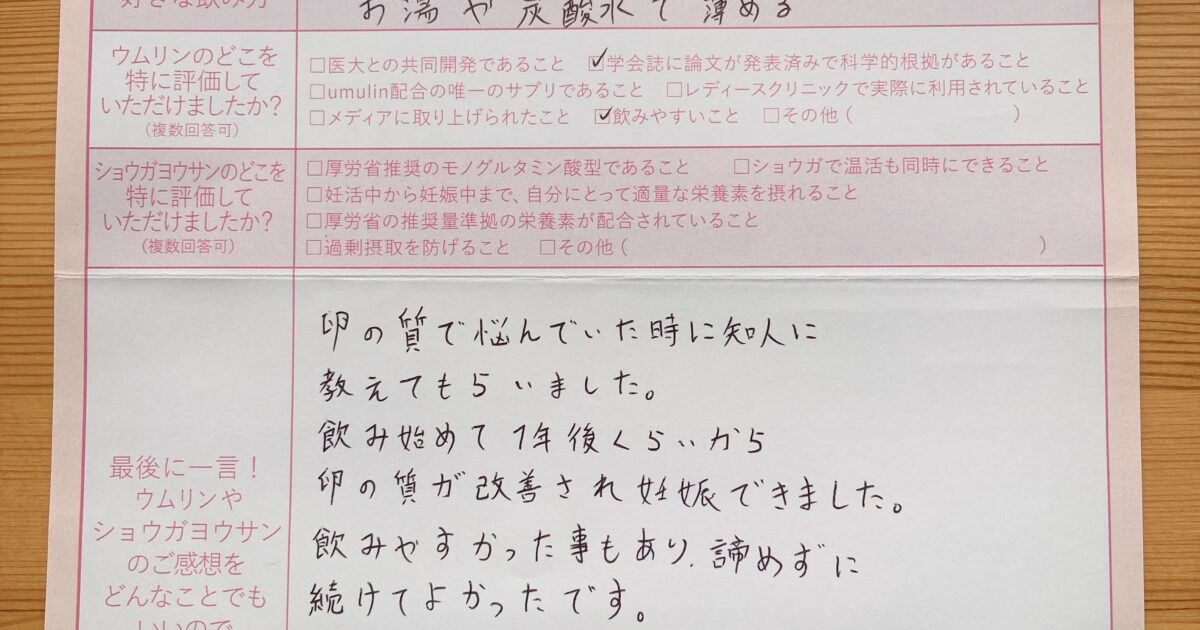 好きな飲み方
お湯や炭酸水で薄める
ウムリンのどこを
特に評価して
いただけましたか?
(複数回答可)
□医大との共同開発であること ☑学会誌に論文が発表済みで科学的根拠があること
□umulin配合の唯一のサプリであること □レディースクリニックで実際に利用されていること
□メディアに取り上げられたこと ☑飲みやすいこと □その他( )
ショウガヨウサンのどこを
特に評価して
いただけましたか?
(複数回答可)
□厚労省推奨のモノグルタミン酸型であること □ショウガで温活も同時にできること
□妊活中から妊娠中まで、自分にとって適量な栄養素を摂れること
□厚労省の推奨量準拠の栄養素が配合されていること
□過剰摂取を防げること □その他( )
最後に一言!
ウムリンや
ショウガヨウサン
のご感想を
どんなことでも
いいので
卵の質で悩んでいた時に知人に
教えてもらいました。
飲み始めて1年後くらいから
卵の質が改善され妊娠できました。
飲みやすかった事もあり、諦めずに
続けてよかったです。